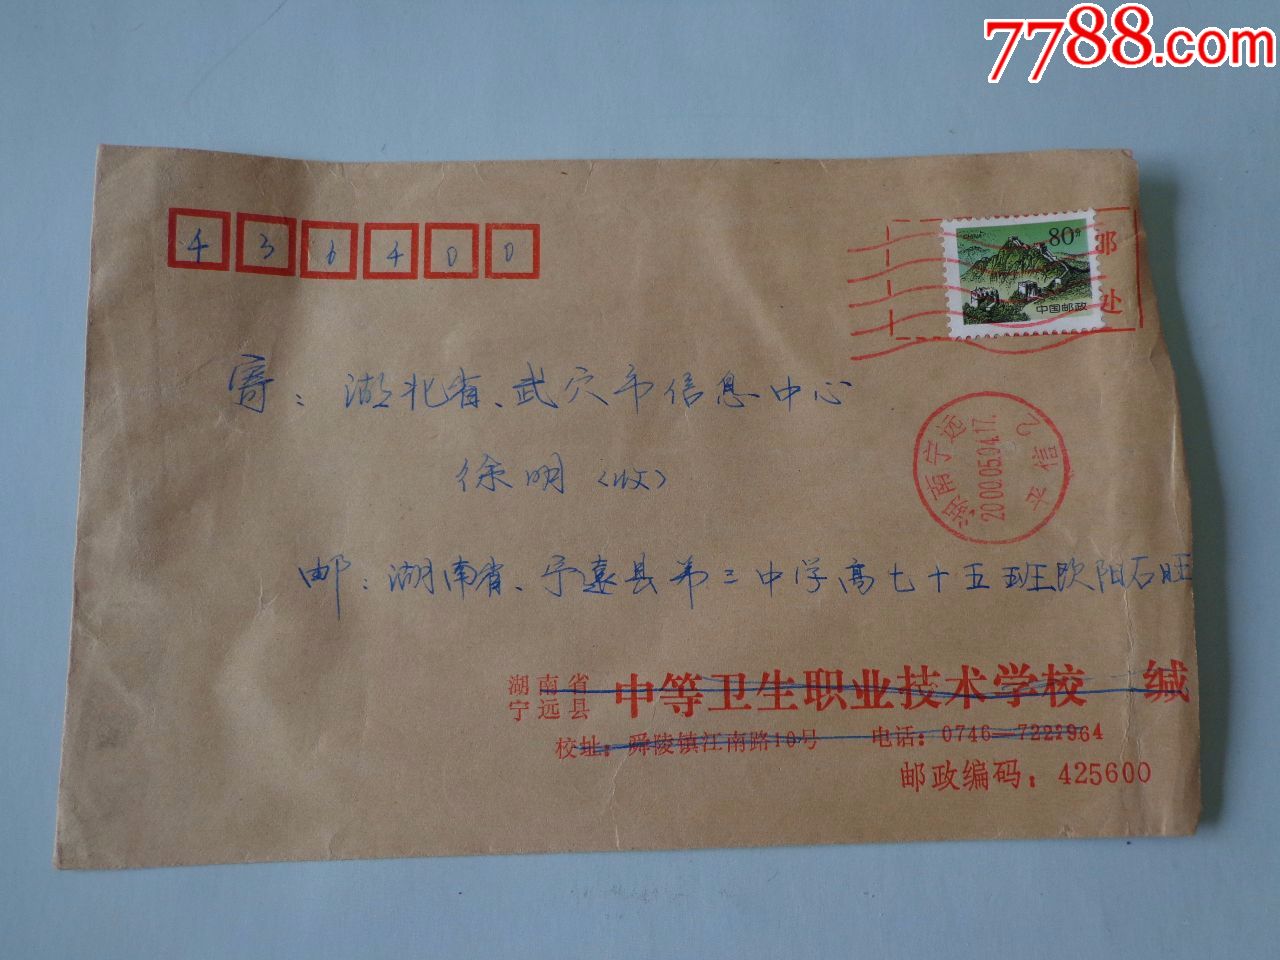 7788.com
436400
CHINA 80分
中国邮政
邮
处
寄：湖北省、武穴市信息中心
徐明（收）
湖南宁远
2000.05.04.17.
平信 乙
邮：湖南省、宁远县第三中学高七十五班欧阳石旺
湖南省宁远县 中等卫生职业技术学校 缄
校址：舜陵镇江南路10号 电话：0746—7222964
邮政编码：425600